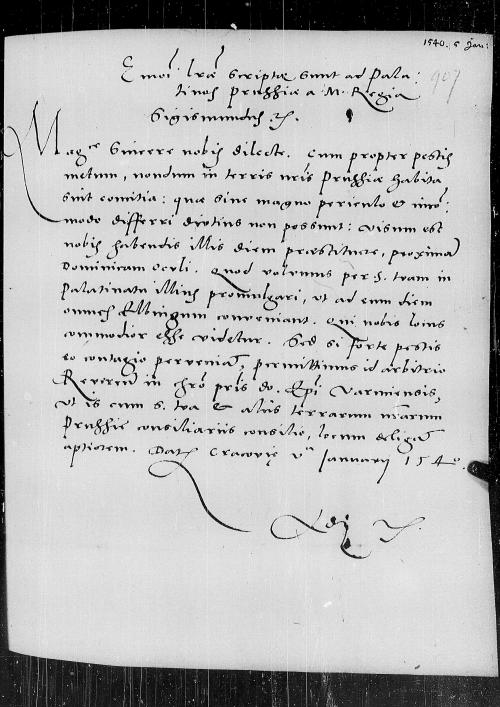 1540. 5 Jan:
907
E moi lrae scriptae sunt ad Pala:
tinos Prussiae a M. Regia
Sigismundus &c.
Magce Sincere nobis dilecte. Cum propter pestis
metum, nondum in terris nris Prussiae habita
sint comitia: quae sine magno periculo & inco[m]
modo differri diutius non possunt: visum est
nobis habendis illis diem praestituere, proxima[m]
Dominicam Oculi. Quod volumus per S. tuam in
Palatinatu illius promulgari, ut ad eum diem
omnes Elbingum conveniant. Qui nobis locus
commodior esse videtur. Sed si forte pestis
eo contagio perveniat, permittimus id arbitrio
Reverend in chro pris do. Epi Varmiensis,
ut is cum s. tua & aliis terrarum nrarum
Prussie consiliariis consilio, locum deligat
aptiorem. Dat Cracovię va Januarij 1540.